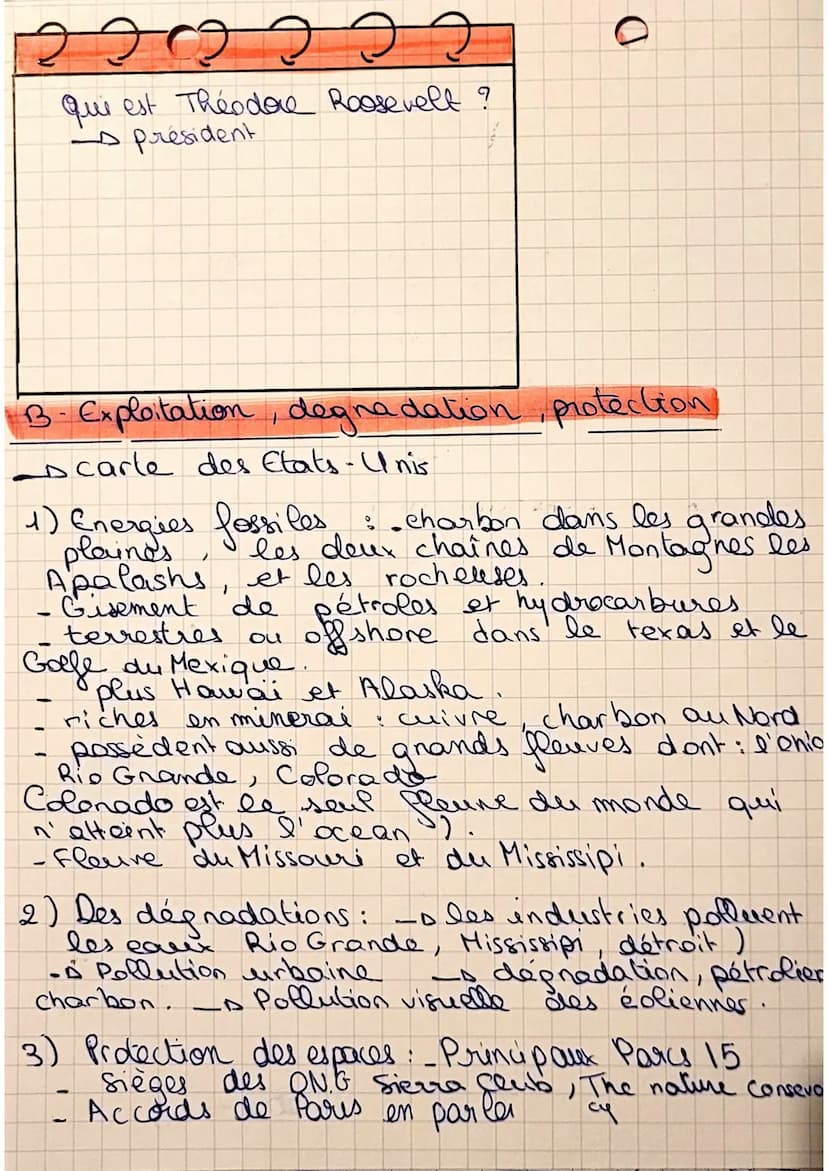 Qui est Théodore Roosevelt ?
→ président
B - Exploitation, dégradation, protection
→ carte des Etats-Unis
1) Energies fossiles : - charbon dans les grandes
plaines, les deux chaînes de Montagnes les
Apalashs, et les rocheuses.
- Gisement de pétroles et hydrocarbures
- terrestres ou offshore dans le texas et le
Golfe du Mexique.
- plus Hawaï et Alaska.
- riches en minerai : cuivre, charbon au Nord
- possèdent aussi de grands fleuves dont : l'Ohio
Rio Grande, Colorado
Colorado est le seul fleuve du monde qui
n'atteint plus l'ocean).
- Fleuve du Missouri et du Mississipi.
2) Des dégradations : → les industries polluent
les eaux Rio Grande, Mississipi, détroit)
→ Pollution urbaine → dégradation, pétrolier
charbon. → Pollution visuelle des éoliennes.
3) Protection des espaces : - Principaux Parcs 15
- sièges des ONG Sierra club, The nature conserva
cy
- Accords de Paris en parler